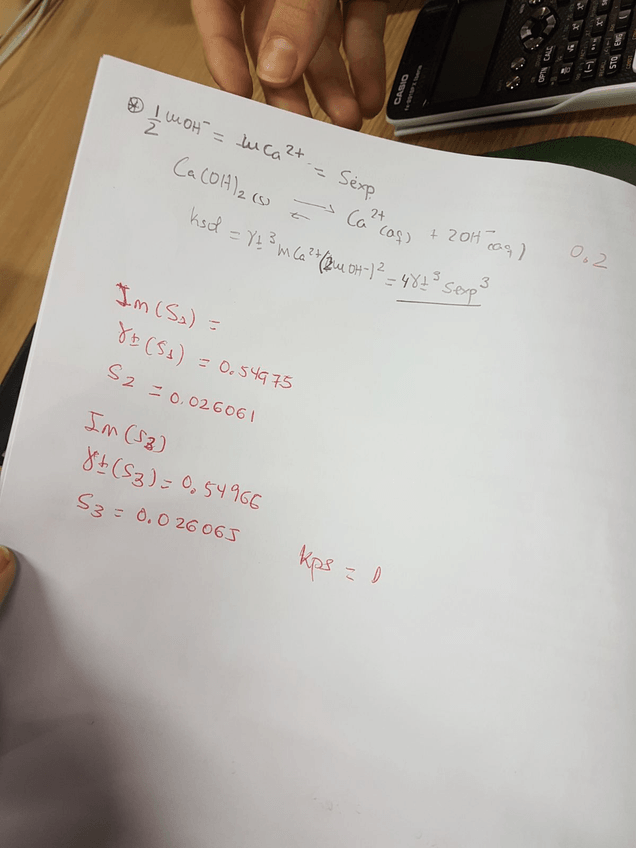 CASIO
OPTN CALC
STO ENG
⊛ 1/2 mOH⁻ = mCa²⁺ = Sexp
Ca(OH)₂ (s) ⇌ Ca²⁺(aq) + 2OH⁻(aq)
0.2
ksd = γ±³ mCa²⁺(2mOH⁻)² = 4γ±³ Sexp³
Im(S₁) =
γ±(S₁) = 0.54975
S₂ = 0.026061
Im(S₃)
γ±(S₃) = 0,54966
S₃ = 0.026065
Kps = 0